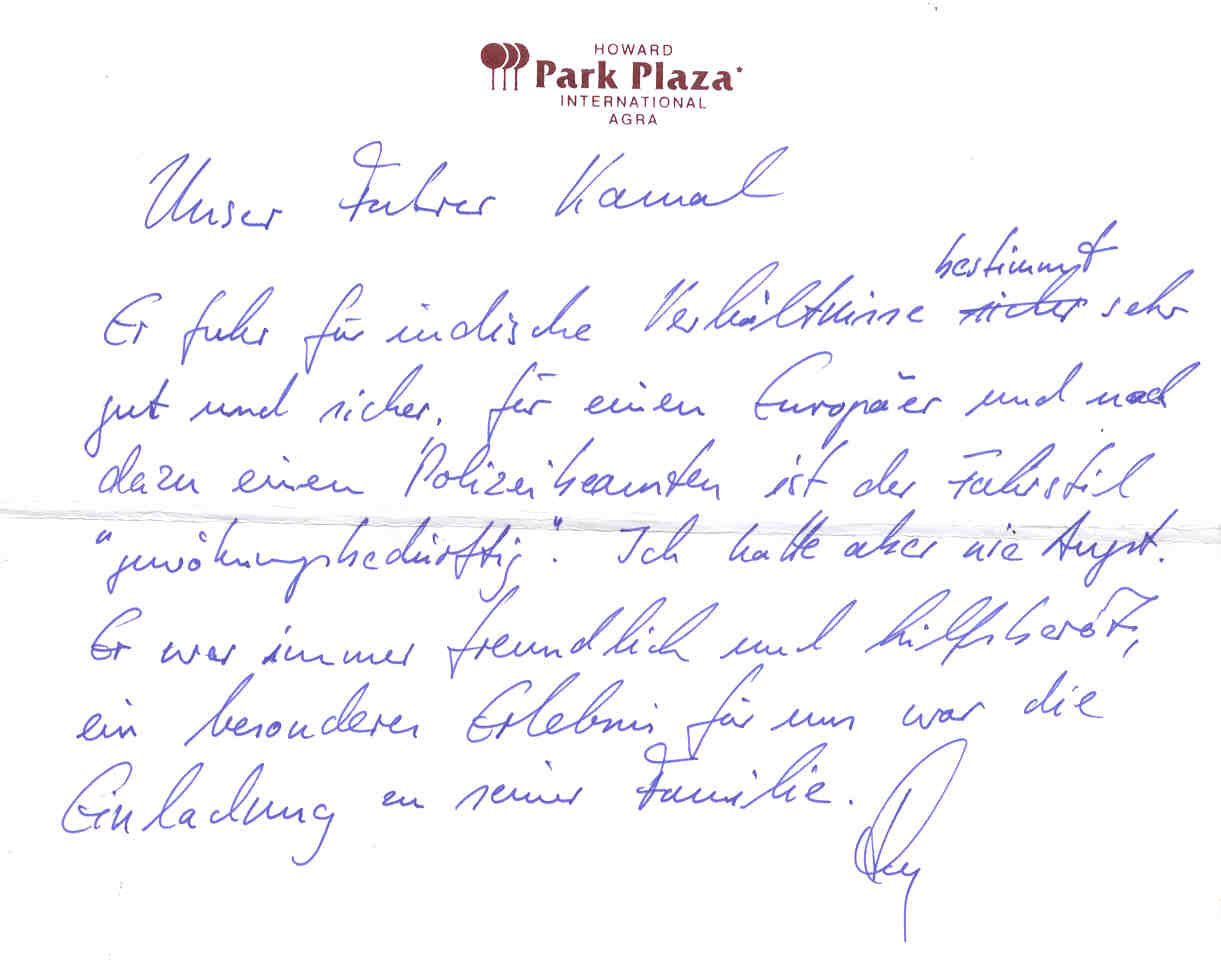 HOWARD
Park Plaza
INTERNATIONAL
AGRA
Unser Fahrer Kamal
bestimmt
Er fuhr für indische Verhältnisse sicher sehr
gut und sicher. Für einen Europäer und noch
dazu einen Polizeibeamten ist der Fahrstil
"gewöhnungsbedürftig". Ich hatte aber nie Angst.
Er war immer freundlich und hilfsbereit,
ein besonderes Erlebnis für uns war die
Einladung zu seiner Familie.